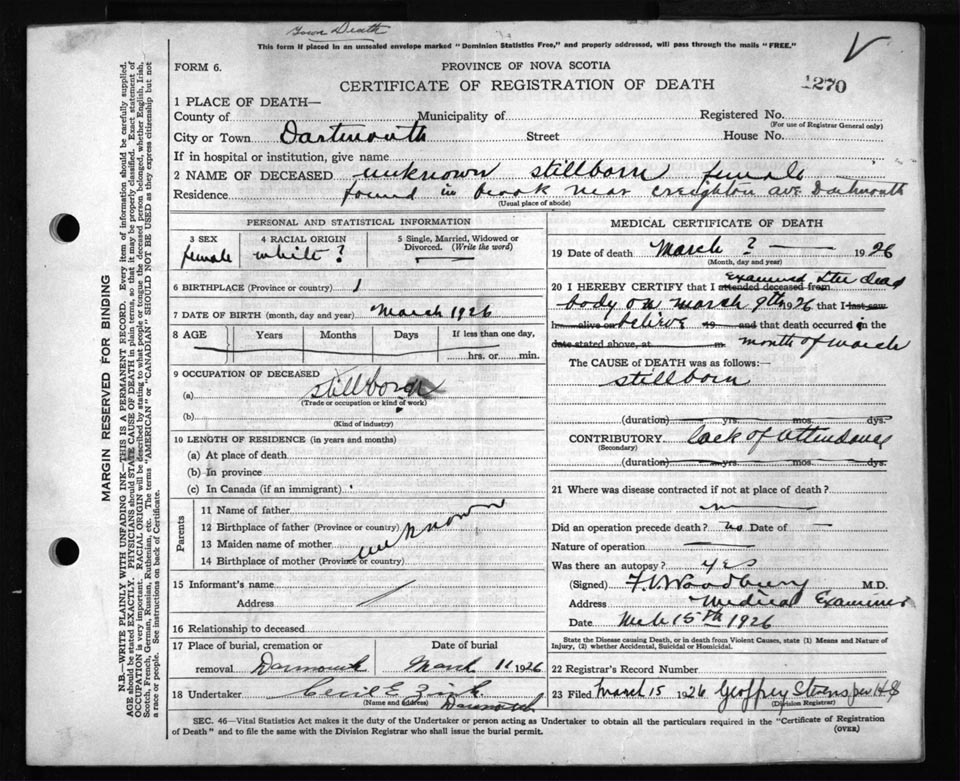 Town Death
This form if placed in an unsealed envelope marked "Dominion Statistics Free," and properly addressed, will pass through the mails "FREE."
FORM 6.
PROVINCE OF NOVA SCOTIA
CERTIFICATE OF REGISTRATION OF DEATH
1270
1 PLACE OF DEATH—
County of Municipality of Registered No.
(For use of Registrar General only)
City or Town Dartmouth Street House No.
If in hospital or institution, give name
2 NAME OF DECEASED unknown stillborn female
Residence found in brook near Creighton ave Dartmouth
(Usual place of abode)
PERSONAL AND STATISTICAL INFORMATION
3 SEX 4 RACIAL ORIGIN 5 Single, Married, Widowed or Divorced. (Write the word)
female white ?
6 BIRTHPLACE (Province or country)
7 DATE OF BIRTH (month, day and year) March 1926
8 AGE Years Months Days If less than one day,
hrs. or min.
9 OCCUPATION OF DECEASED
(a) stillborn
(Trade or occupation or kind of work)
(b)
(Kind of industry)
10 LENGTH OF RESIDENCE (in years and months)
(a) At place of death
(b) In province
(c) In Canada (if an immigrant)
Parents
11 Name of father
12 Birthplace of father (Province or country)
13 Maiden name of mother
14 Birthplace of mother (Province or country)
unknown
15 Informant's name
Address
16 Relationship to deceased
17 Place of burial, cremation or Date of burial
removal Darmouth March 11 1926
18 Undertaker Cecil E. Zink
(Name and address) Darmouth
MEDICAL CERTIFICATE OF DEATH
19 Date of death March ? 1926
(Month, day and year)
20 I HEREBY CERTIFY that I attended deceased from Examined the dead
body on March 9th 1926 that I last saw
h alive on believe 19 and that death occurred in the
date stated above, at m month of march
The CAUSE OF DEATH was as follows:—
stillborn
(duration) yrs. mos. dys.
CONTRIBUTORY lack of attendance
(Secondary)
(duration) yrs. mos. dys.
21 Where was disease contracted if not at place of death?
Did an operation precede death? no Date of —
Nature of operation —
Was there an autopsy? yes
(Signed) F.V. Woodbury M.D.
Address Medical Examiner
Date Mch 15th 1926
State the Disease causing Death, or in death from Violent Causes, state (1) Means and Nature of Injury, (2) whether Accidental, Suicidal or Homicidal.
22 Registrar's Record Number
23 Filed March 15 1926 Geoffrey Stevens per H S
(Division Registrar)
SEC. 46—Vital Statistics Act makes it the duty of the Undertaker or person acting as Undertaker to obtain all the particulars required in the "Certificate of Registration
of Death" and to file the same with the Division Registrar who shall issue the burial permit.
(OVER)
MARGIN RESERVED FOR BINDING
N.B.—WRITE PLAINLY WITH UNFADING INK—THIS IS A PERMANENT RECORD. Every item of information should be carefully supplied.
AGE should be stated EXACTLY. PHYSICIANS should STATE CAUSE OF DEATH in plain terms, so that it may be properly classified. Exact statement of
OCCUPATION is very important. RACIAL ORIGIN will be described by stating to what people or tongue the deceased person belonged, whether English, Irish,
Scotch, French, German, Russian, Ruthenian, etc. The terms "AMERICAN" or "CANADIAN" SHOULD NOT BE USED as they express citizenship but not
a race or people. See instructions on back of Certificate.